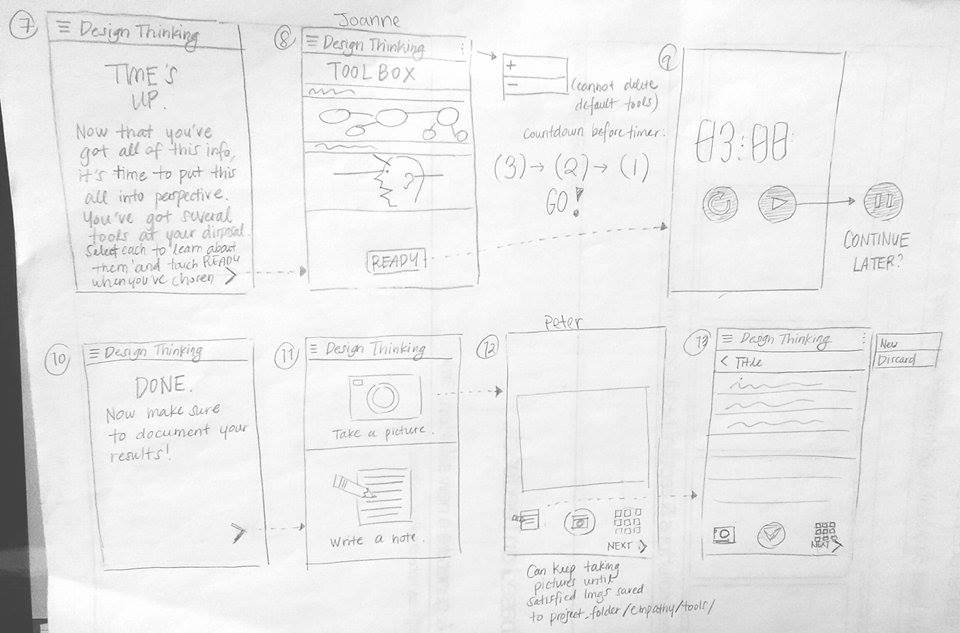 7
Design Thinking
TIME'S
UP.
Now that you've
got all of this info,
it's time to put this
all into perspective.
You've got several
tools at your disposal.
Select each to learn about
them and touch READY
when you've chosen
Joanne
8
Design Thinking
TOOLBOX
?
READY
+
−
(cannot delete
default tools)
countdown before timer.
(3) → (2) → (1)
GO!
9
03:00
CONTINUE
LATER?
10
Design Thinking
DONE.
Now make sure
to document your
results!
11
Design Thinking
Take a picture.
Write a note.
Peter
12
NEXT >
Can keep taking
pictures until
satisfied imgs saved
to project_folder/empathy/tools/
13
Design Thinking
< Title
New
Discard
NEXT >